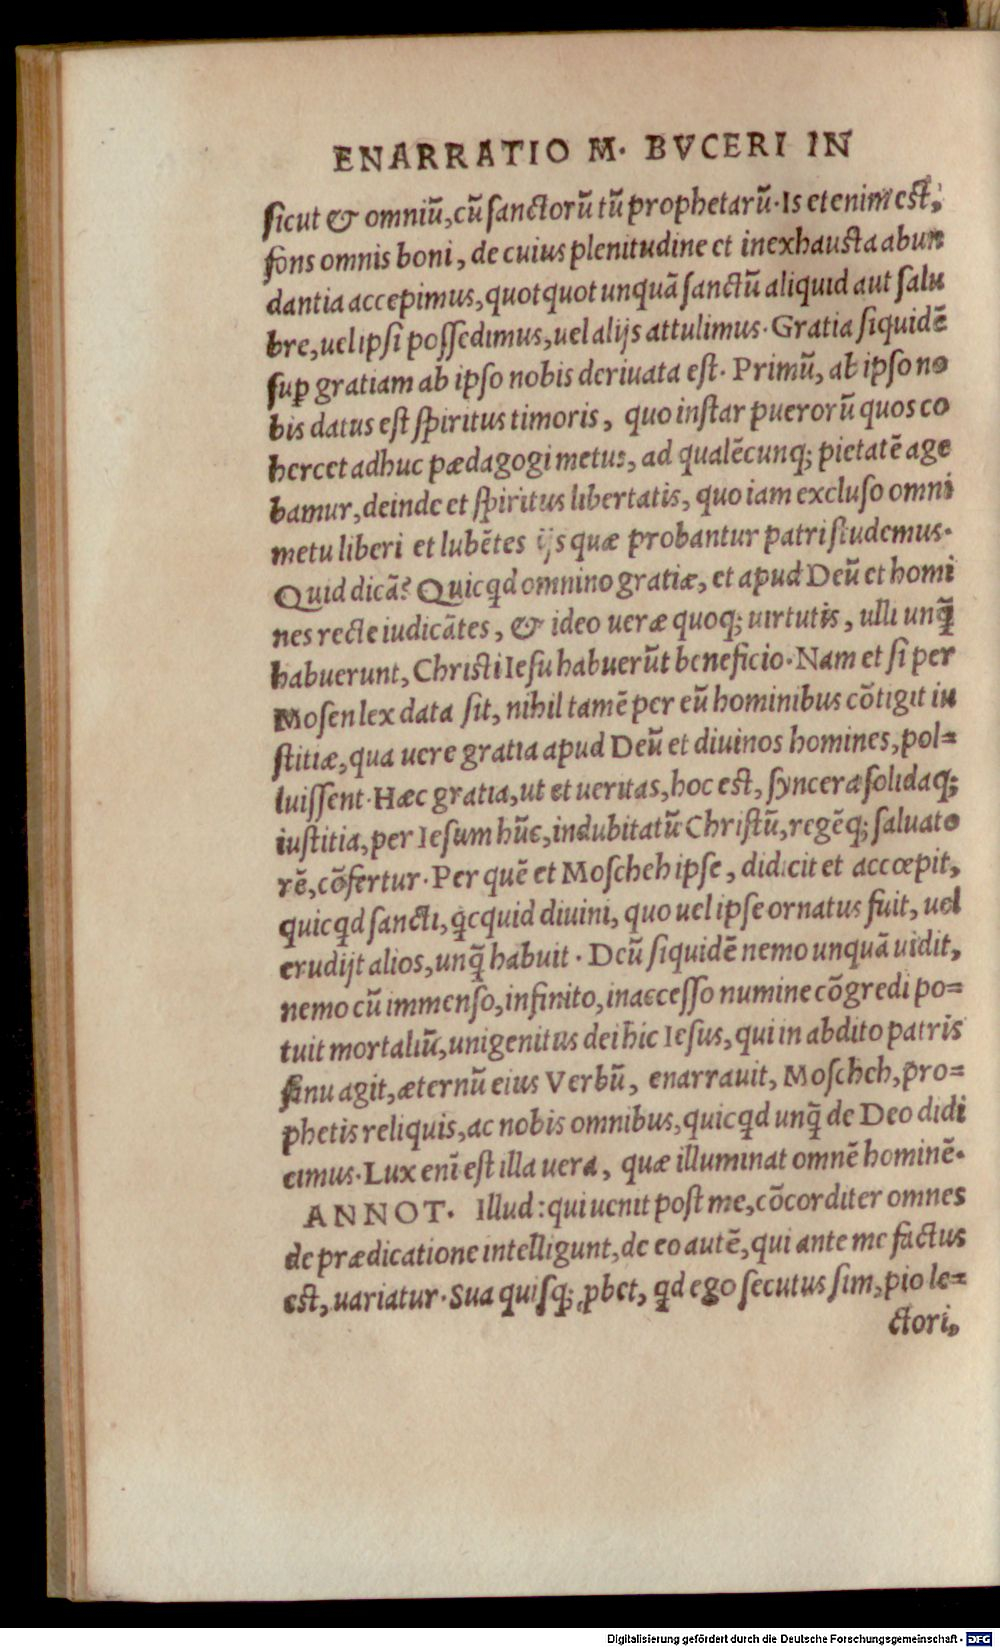 ENARRATIO M. BVCERI IN
sicut & omniũ, cũ sanctorũ tũ prophetarũ. Is etenim est,
fons omnis boni, de cuius plenitudine et inexhausta abun
dantia accepimus, quotquot unquã sanctũ aliquid aut salu
bre, uel ipsi possedimus, uel alijs attulimus. Gratia siquidẽ
suꝑ gratiam ab ipso nobis deriuata est. Primũ, ab ipso no
bis datus est spiritus timoris, quo instar puerorũ quos co
hercet adhuc pædagogi metus, ad qualẽcunq; pietatẽ age
bamur, deinde et spiritus libertatis, quo iam excluso omni
metu liberi et lubẽtes ijs quæ probantur patri studemus.
Quid dicã? Quicq̃d omnino gratiæ, et apud Deũ et homi
nes recte iudicãtes, & ideo ueræ quoq; uirtutis, ulli unq̃
habuerunt, Christi Iesu habuerũt beneficio. Nam et si per
Mosen lex data sit, nihil tamẽ per eũ hominibus cõtigit iu
stitiæ, qua uere gratia apud Deũ et diuinos homines, pol=
luissent. Hæc gratia, ut et ueritas, hoc est, syncera solidaq;
iustitia, per Iesum hũc, indubitatũ Christũ, regẽq; saluato
rẽ, cõfertur. Per quẽ et Moscheh ipse, didicit et accœpit,
quicq̃d sancti, q̃cquid diuini, quo uel ipse ornatus fuit, uel
erudijt alios, unq̃ habuit. Deũ siquidẽ nemo unquã uidit,
nemo cũ immenso, infinito, inaccesso numine cõgredi po=
tuit mortaliũ, unigenitus dei hic Iesus, qui in abdito patris
sinu agit, æternũ eius Verbũ, enarrauit, Moscheh, pro=
phetis reliquis, ac nobis omnibus, quicq̃d unq̃ de Deo didi
cimus. Lux enĩ est illa uera, quæ illuminat omnẽ hominẽ.
ANNOT. Illud: qui uenit post me, cõcorditer omnes
de prædicatione intelligunt, de eo autẽ, qui ante me factus
est, uariatur. Sua quisq; ꝓbet, q̃d ego secutus sim, pio le=
ctori,
Digitalisierung gefördert durch die Deutsche Forschungsgemeinschaft - DFG